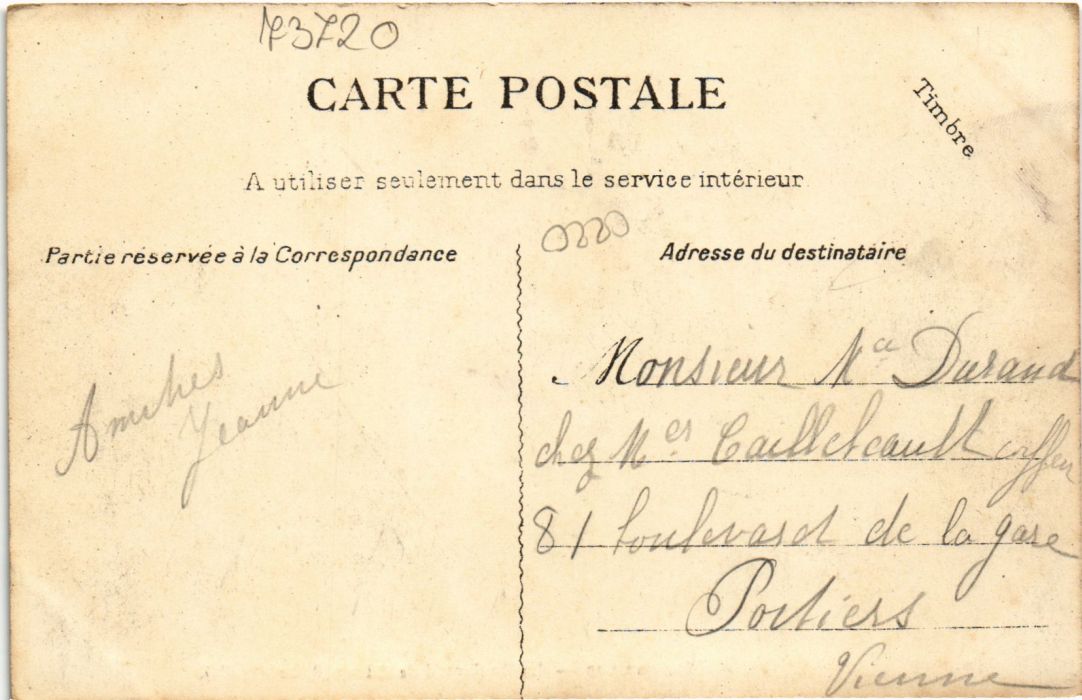 73720
CARTE POSTALE
Timbre
A utiliser seulement dans le service intérieur
0220
Partie réservée à la Correspondance
Adresse du destinataire
Amitiés
Jeanne
Monsieur Mce Durand
chez Mer
81 boulevard de la gare
Poitiers
Vienne